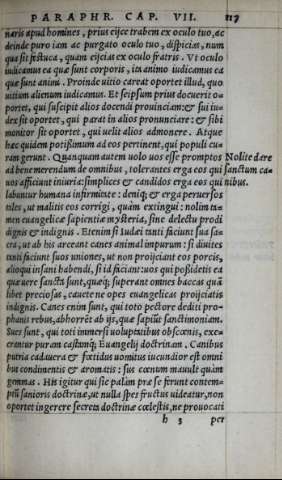 PARAPHR. CAP. VII. 117
naris apud homines, prius eijce trabem ex oculo tuo, ac
deinde puro iam ac purgato oculo tuo, dispicias, num
qua sit festuca, quam eijcias ex oculo fratris. Vt oculo
iudicamus ea quæ sunt corporis, ita animo iudicamus ea
quæ sunt animi. Proinde uitio careat oportet illud, quo
uitium alienum iudicamus. Et seipsum prius docuerit o-
portet, qui suscipit alios docendi prouinciam: & sui iu-
dex sit oportet, qui parat in alios pronunciare: & sibi
monitor sit oportet, qui uelit alios admonere. Atque
hæc quidem potissimum ad eos pertinent, qui populi cu-
ram gerunt. Quanquam autem uolo uos esse promptos
ad benemerendum de omnibus, tolerantes erga eos qui
uos afficiunt iniuria: simplices & candidos erga eos qui
labuntur humana infirmitate: deniq; & erga peruersos
tales, ut malitis eos corrigi, quàm extingui: nolim ta-
men euangelicæ sapientiæ mysteria, sine delectu prodi
dignis & indignis. Etenim si Iudæi tanti faciunt sua sa-
cra, ut ab his arceant canes animal impurum: si diuites
tanti faciunt suos uniones, ut non proijciant eos porcis,
alioqui insani habendi, si id faciant: uos qui possidetis ea
quæ uere sancta sunt, quæq; superant omnes baccas quā
libet preciosas, cauete ne opes euangelicas proijciatis
indignis. Canes enim sunt, qui toto pectore dediti pro-
phanis rebus, abhorrēt ab ijs, quæ sapiūt sanctimoniam.
Sues sunt, qui toti immersi uoluptatibus obscœnis, exe-
crantur puram castāmq; Euangelij doctrinam. Canibus
putria cadauera & fœtidus uomitus iucundior est omni
bus condimentis & aromatis: sus cœnum mauult quàm
gemmas. His igitur qui sic palàm præ se ferunt contem-
ptū sanioris doctrinæ, ut nulla spes fructus uideatur, non
oportet ingerere secreta doctrinæ cœlestis, ne prouocati
h 3 per
Nolite dare
sanctum ca-
nibus.